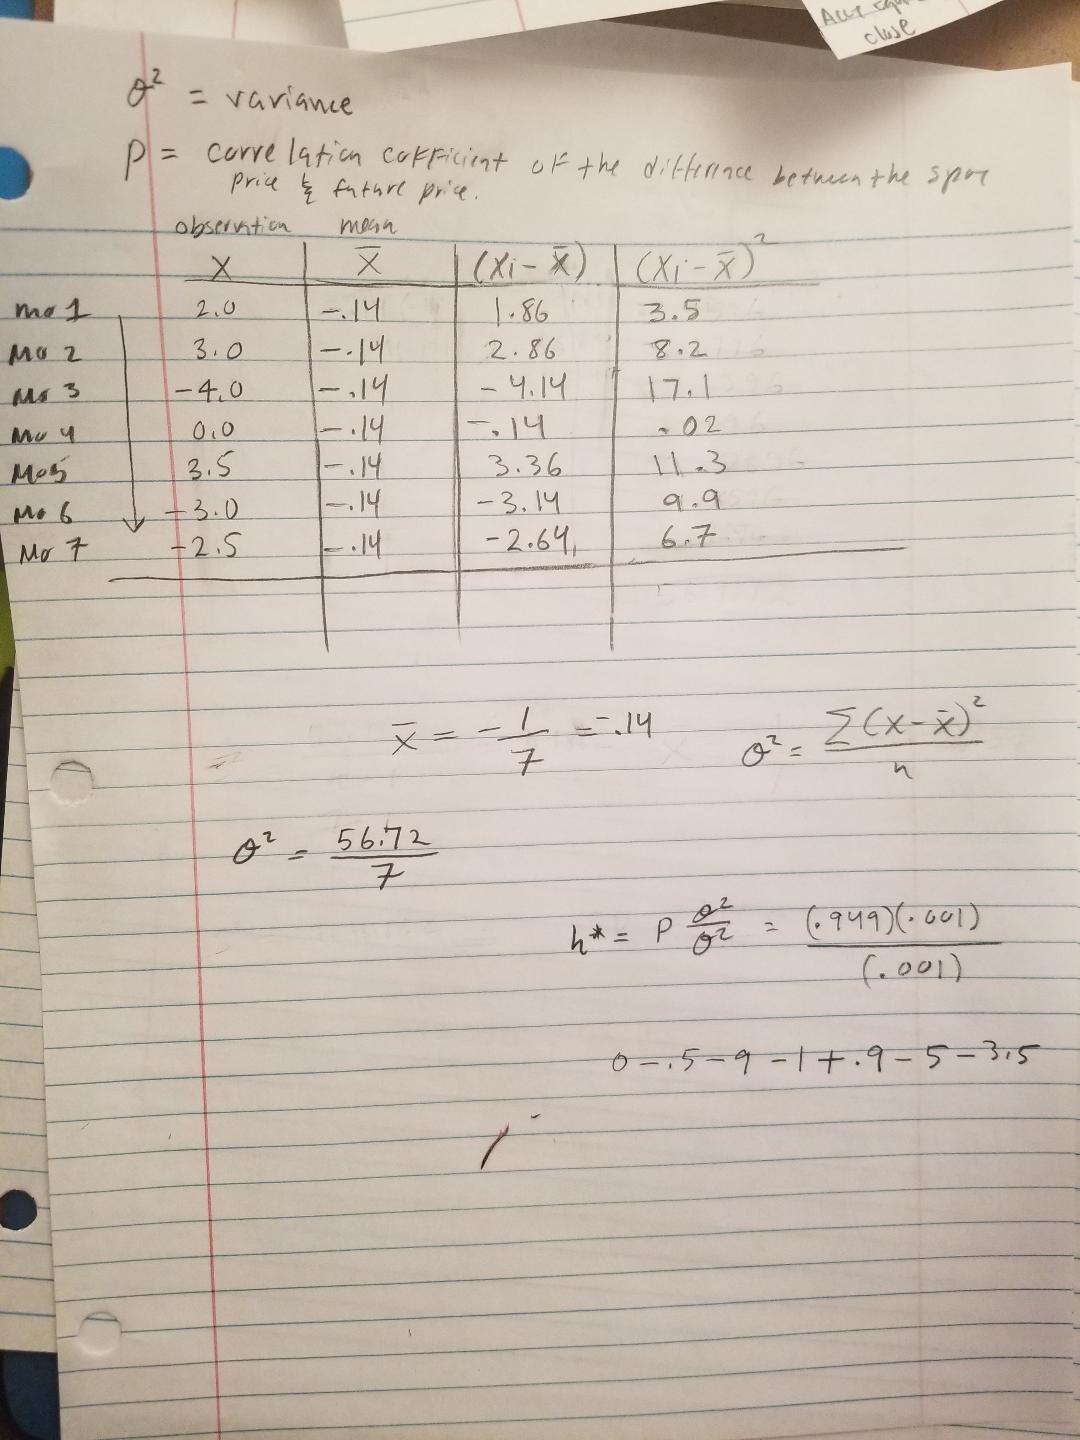 Acc
close
σ² = variance
P = correlation coefficient of the difference between the spot
price & future price.
observation mean
X x̄ (Xi - x̄) (Xi - x̄)²
Mo 1 2.0 -.14 1.86 3.5
Mo 2 3.0 -.14 2.86 8.2
Mo 3 -4.0 -.14 -4.14 17.1
Mo 4 0.0 -.14 -.14 .02
Mo 5 3.5 -.14 3.36 11.3
Mo 6 -3.0 -.14 -3.14 9.9
Mo 7 -2.5 -.14 -2.64 6.7
x̄ = -1/7 = -.14
σ² = Σ(x-x̄)²/n
σ² = 56.72/7
h* = P σ²/σ² = (.949)(.001)/(.001)
0-.5-9-1+.9-5-3.5